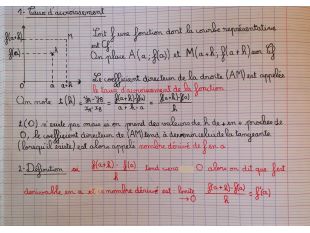 1- Taux d'accroissement
Soit f une fonction dont la courbe représentative
est Cf
f(a+h)
M
On place A(a; f(a)) et M(a+h; f(a+h)) sur Cf
f(a)
A
Le coefficient directeur de la droite (AM) est appelée
0
a
a+h
le taux d'accroissement de la fonction
On note t(h) = (yM - yA)/(xM - xA) = (f(a+h) - f(a))/(a+h-a) = (f(a+h) - f(a))/h
t(0) n'existe pas mais si on prend des valeurs de h de + en + proches de
0, le coefficient directeur de (AM) tend à devenir celui de la tangente
(lorsqu'il existe) est alors appelé nombre dérivé de f en a
2- Définition si (f(a+h) - f(a))/h tend vers 0 alors on dit que f est
dérivable en a et ce nombre dérivé est limite →0 (f(a+h) - f(a))/h = f'(a)